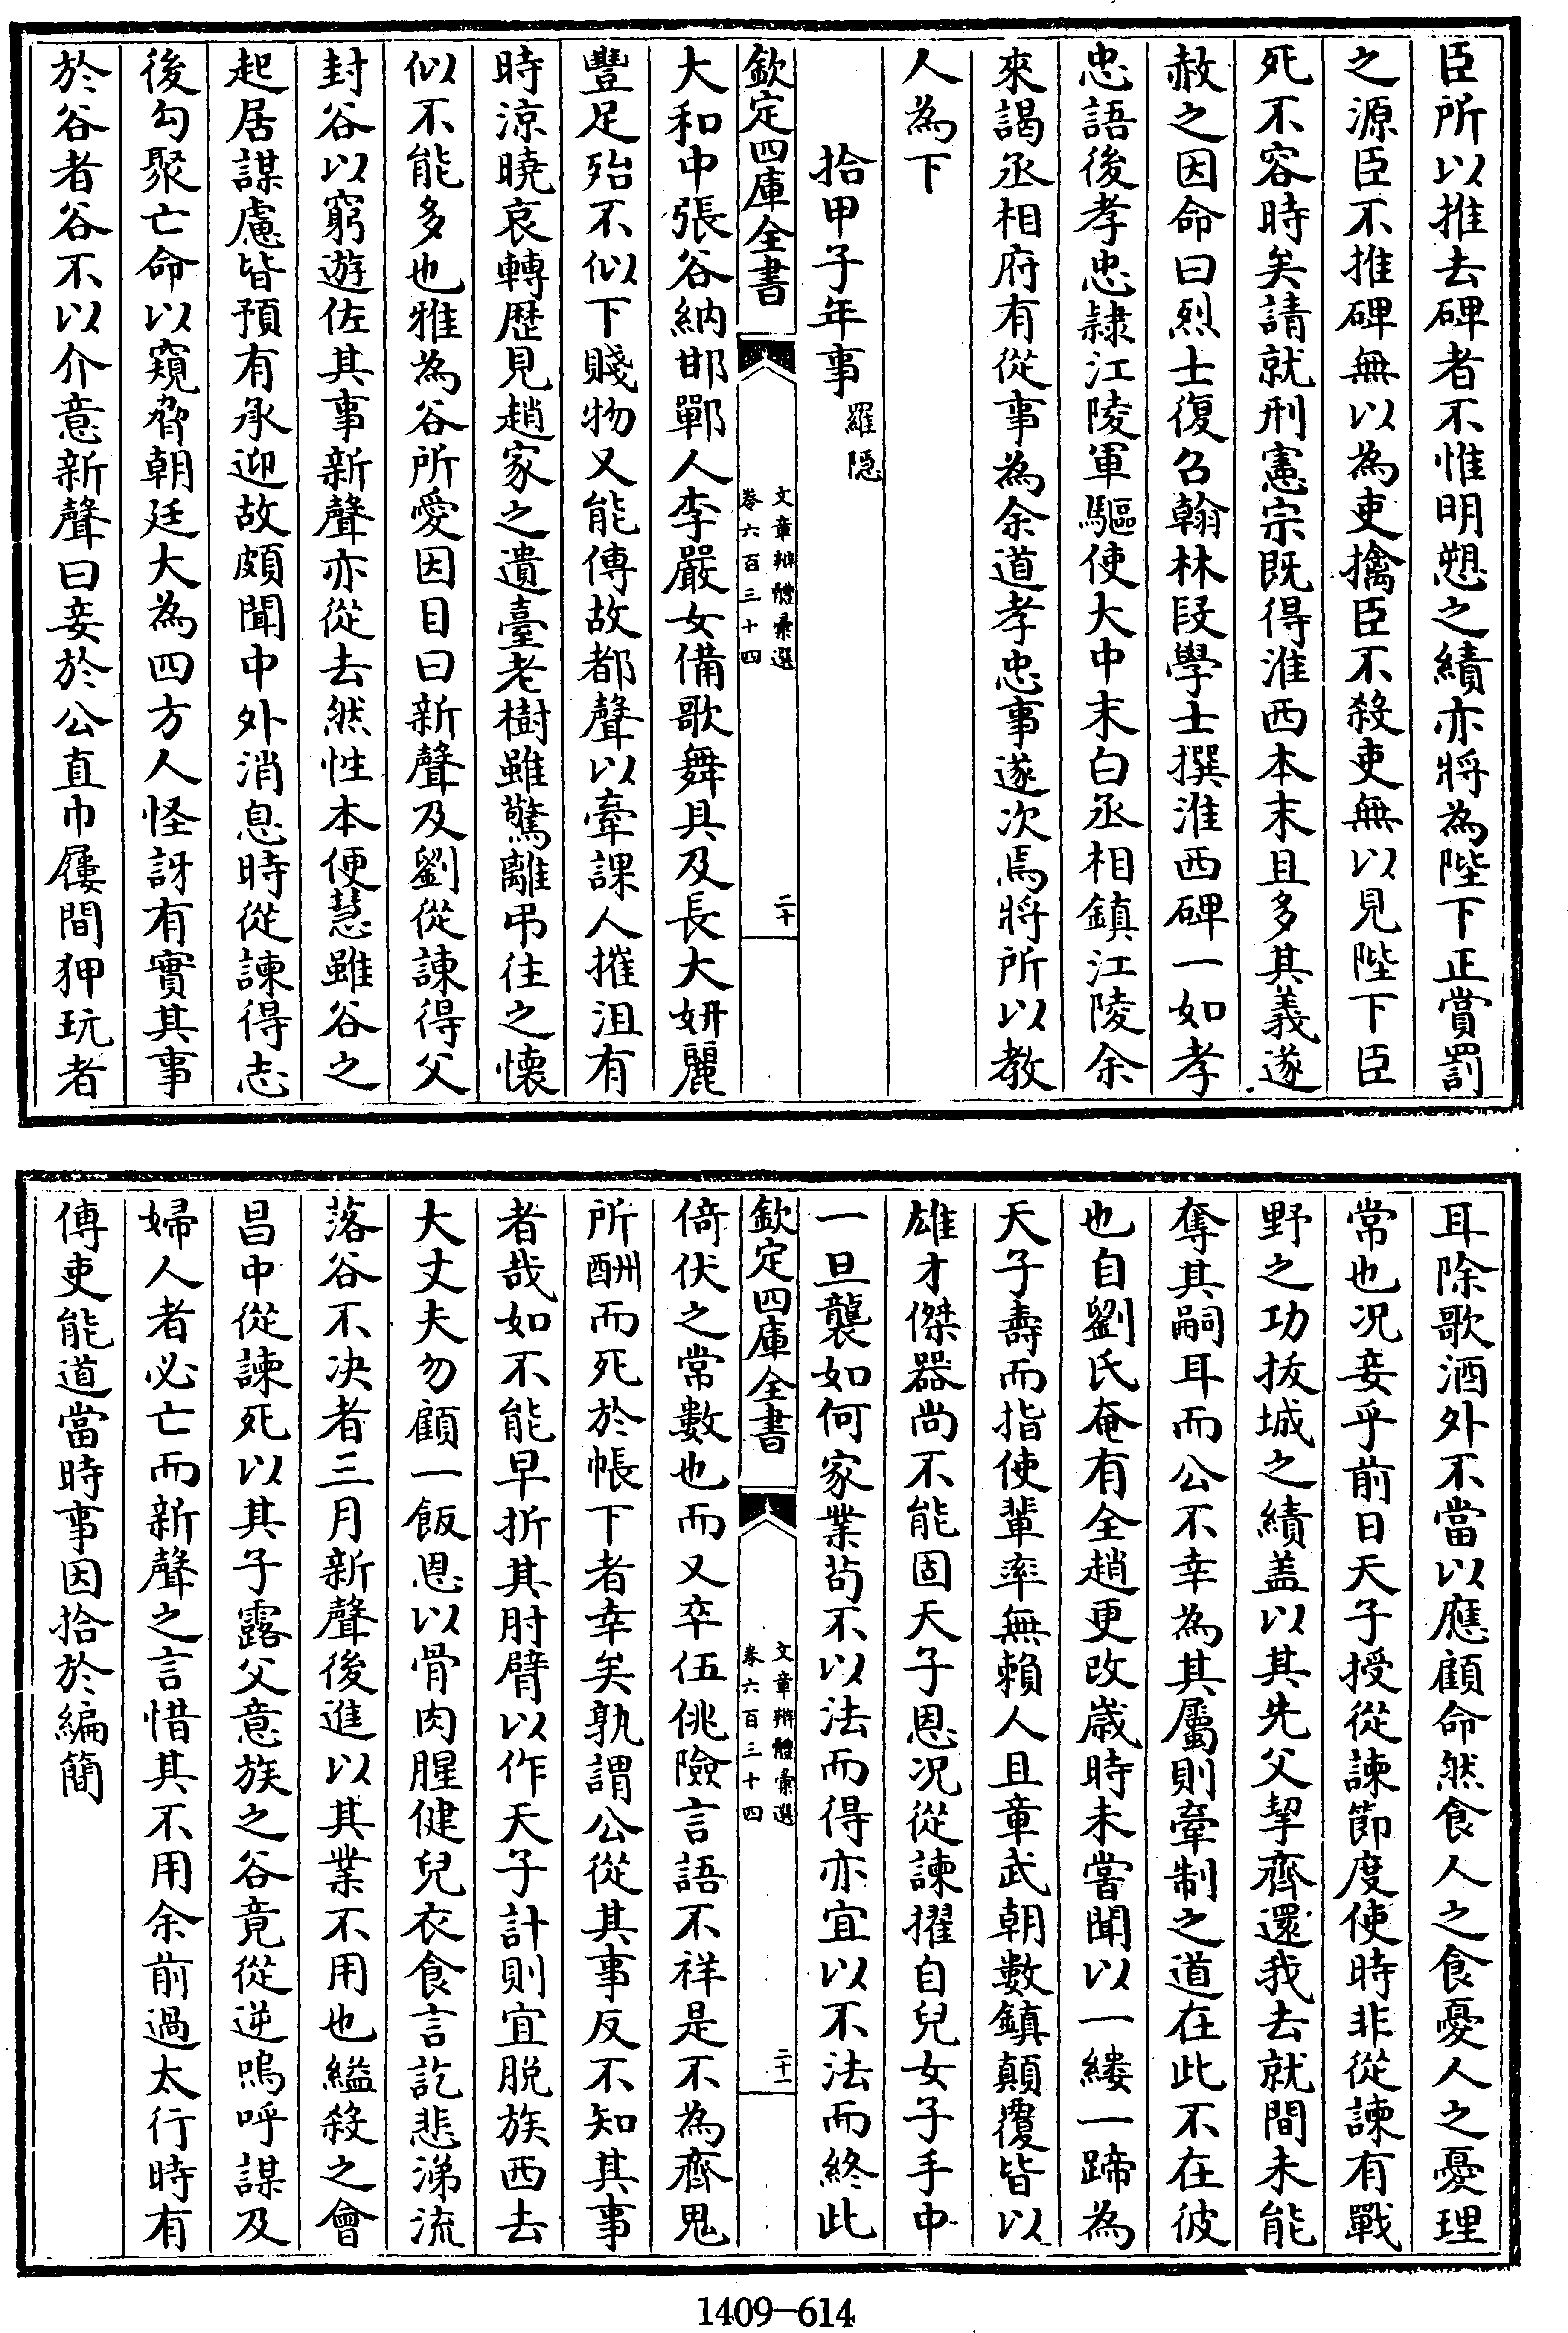 臣所以推去碑者不惟明愬之績亦將為陛下正賞罰
之源臣不推碑無以為吏擒臣不殺吏無以見陛下臣
死不容時矣請就刑憲宗既得淮西本末且多其義遂
赦之因命曰烈士復召翰林段學士撰淮西碑一如孝
忠語後孝忠隸江陵軍驅使大中末白丞相鎮江陵余
來謁丞相府有從事為余道孝忠事遂次焉將所以教
人為下
拾甲子年事羅隱
欽定四庫全書
文章辨體彙選
卷六百三十四
二十
大和中張谷納邯鄲人李嚴女備歌舞具及長大妍麗
豐足殆不似下賤物又能傳故都聲以牽課人摧沮有
時涼曉哀轉歷見趙家之遺臺老樹雖驚離弔往之懷
似不能多也雅為谷所愛因目曰新聲及劉從諫得父
封谷以窮遊佐其事新聲亦從去然性本便慧雖谷之
起居謀慮皆預有承迎故頗聞中外消息時從諫得志
後勾聚亡命以窺脅朝廷大為四方人怪訝有實其事
於谷者谷不以介意新聲曰妾於公直巾屨間狎玩者
耳除歌酒外不當以應顧命然食人之食憂人之憂理
常也况妾乎前日天子授從諫節度使時非從諫有戰
野之功拔城之績盖以其先父挈齊還我去就間未能
奪其嗣耳而公不幸為其屬則牽制之道在此不在彼
也自劉氏奄有全趙更改歲時未嘗聞以一縷一蹄為
天子壽而指使輩率無賴人且章武朝數鎮顛覆皆以
雄才傑器尚不能固天子恩况從諫擢自兒女子手中
一旦襲如何家業茍不以法而得亦宜以不法而終此
欽定四庫全書
文章辨體彙選
卷六百三十四
二十一
倚伏之常數也而又卒伍佻險言語不祥是不為齊鬼
所酬而死於帳下者幸矣孰謂公從其事反不知其事
者哉如不能早折其肘臂以作天子計則宜脱族西去
大丈夫勿顧一飯恩以骨肉腥健兒衣食言訖悲涕流
落谷不决者三月新聲後進以其業不用也縊殺之會
昌中從諫死以其子露父意族之谷竟從逆嗚呼謀及
婦人者必亡而新聲之言惜其不用余前過太行時有
傳吏能道當時事因拾於編簡
1409-614